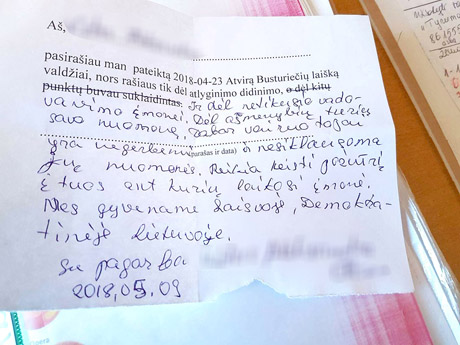 Aš,
pasirašiau man pateiktą 2018-04-23 Atvirą Busturiečių laišką
valdžiai, nors rašiaus tik dėl atlyginimo didinimo, o dėl kitų
punktų buvau suklaidintas. Ir dėl netikusio vado-
vavimo įmonei. Dėl asmenybių turinčių
savo nuomonę, dabar vairuotojai
yra negerbiami (parašas ir data) ir nesiklausoma
jų nuomonės. Reikia keisti požiūrį
į tuos ant kurių laikosi įmonė.
Mes gyvename Laisvoje, Demokra-
tinėje Lietuvoje.
Su pagarba
2018,05.09